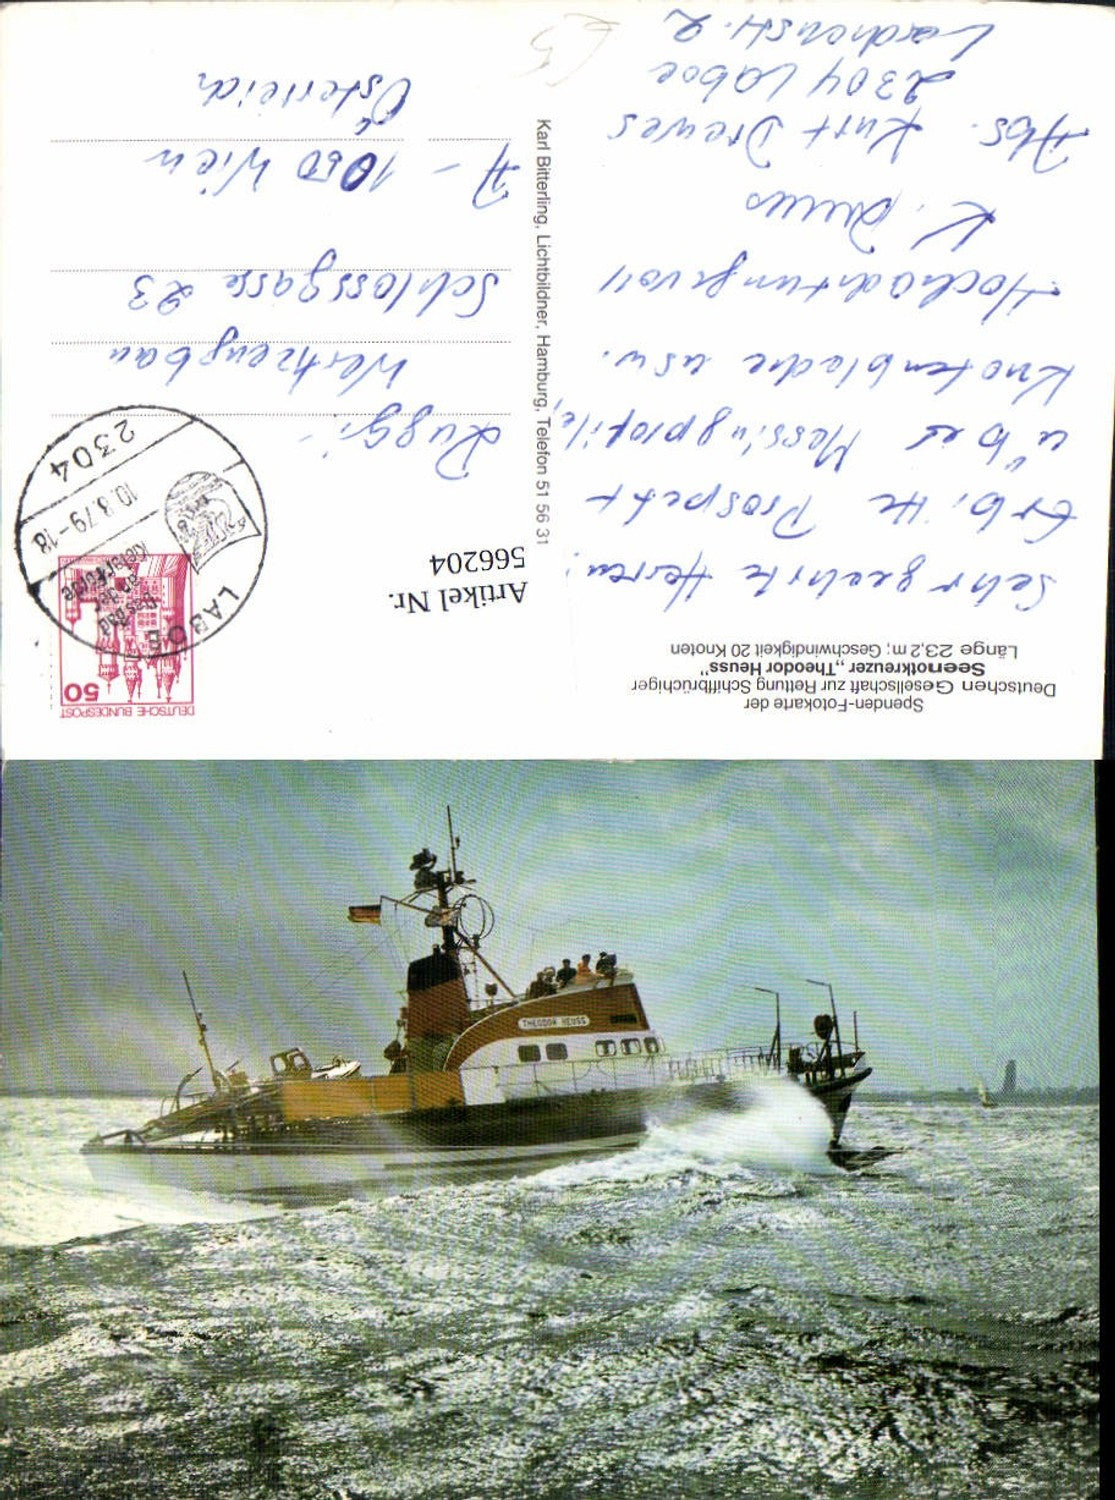 Spenden-Fotokarte der
Deutschen Gesellschaft zur Rettung Schiffbrüchiger
Seenotkreuzer „Theodor Heuss"
Länge 23,2 m; Geschwindigkeit 20 Knoten
Sehr geehrte Herren!
Erbitte Prospekt
über Messingprofile,
Knotenbleche usw.
Hochachtungsvoll
K. Drewes
Abs. Kurt Drewes
2304 Laboe
Karl Bitterling, Lichtbildner, Hamburg, Telefon 51 56 31
DEUTSCHE BUNDESPOST
50
LABOE
Ostseebad
an der
Kieler Förde
10.8.79-18
2304
Artikel Nr.
566204
Werkzeugbau
Schlossgasse 23
A - 1050 Wien
Österreich
THEODOR HEUSS